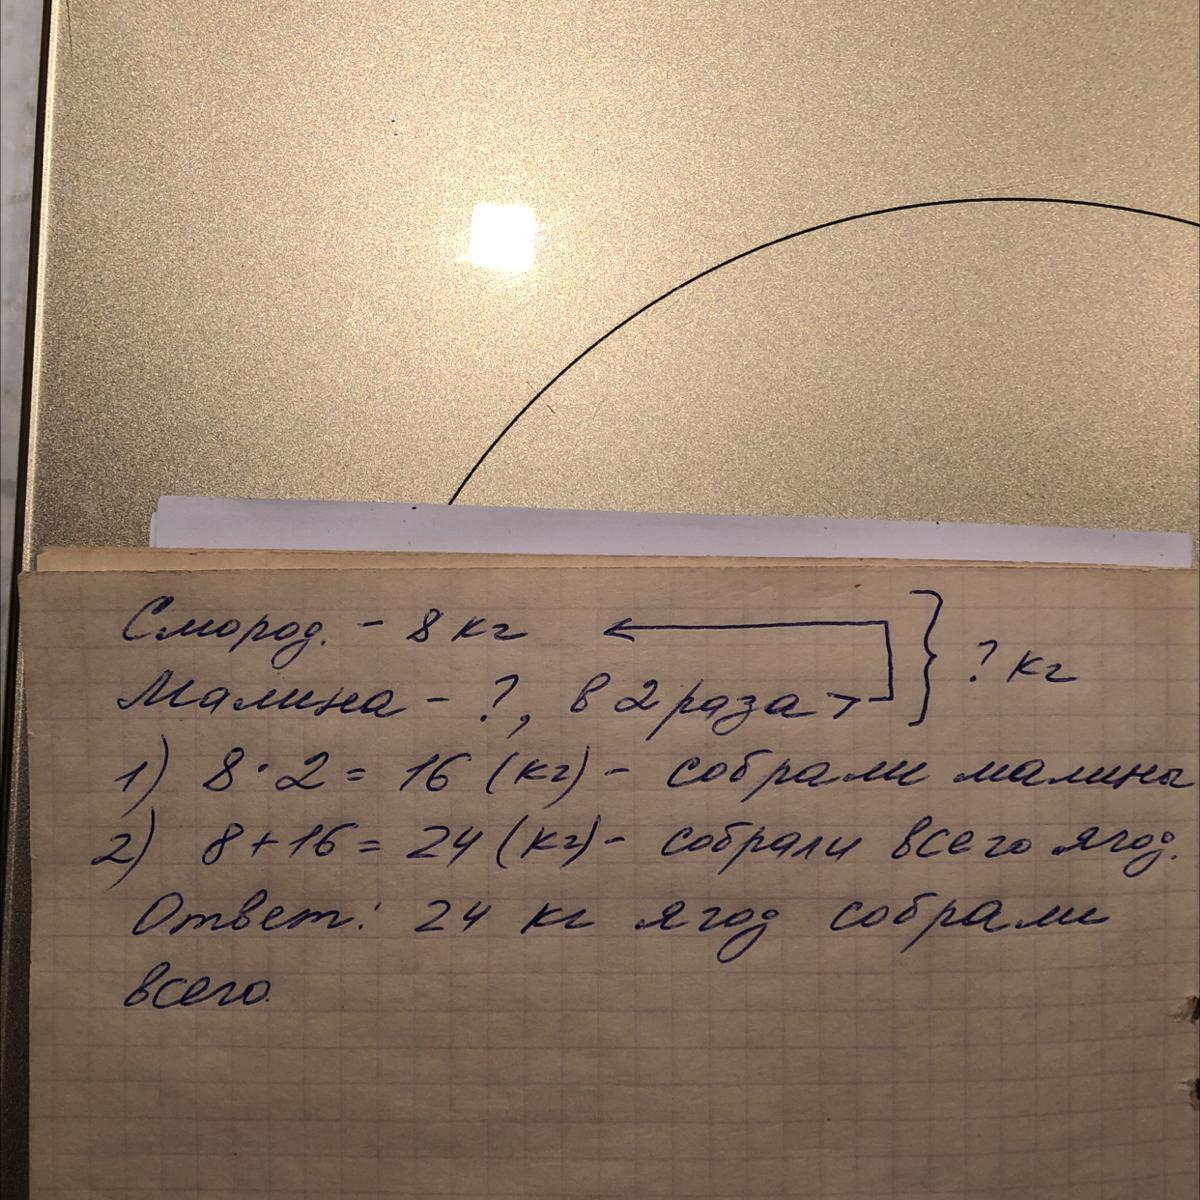 Смород. - 8 кг
Малина - ?, в 2 раза >
} ? кг
1) 8 · 2 = 16 (кг) - собрали малины
2) 8 + 16 = 24 (кг) - собрали всего ягод.
Ответ: 24 кг ягод собрали
всего.